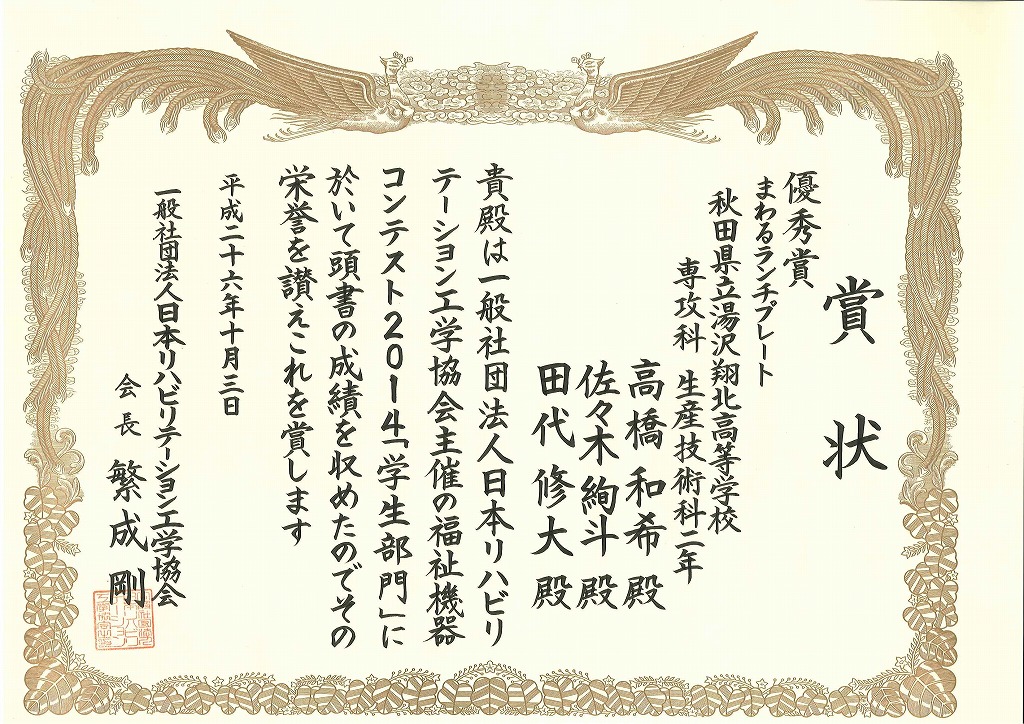 賞状
優秀賞
まわるランチプレート
秋田県立湯沢翔北高等学校
専攻科 生産技術科二年
高橋和希殿
佐々木絢斗殿
田代修大殿
貴殿は一般社団法人日本リハビリ
テーション工学協会主催の福祉機器
コンテスト2014「学生部門」に
於いて頭書の成績を収めたのでその
栄誉を讃えこれを賞します
平成二十六年十月三日
一般社団法人日本リハビリテーション工学協会
会長 繁成剛